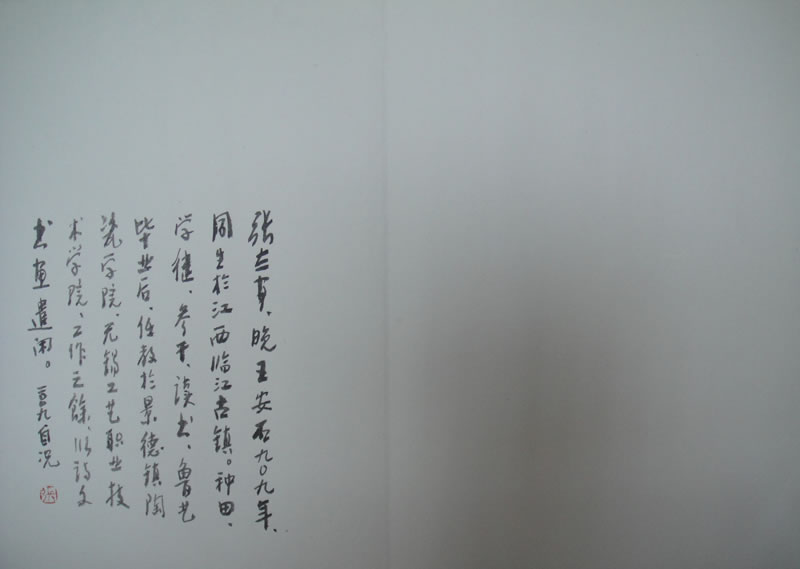 张、晚王安石九〇九年、
同生於江西临江古镇。种田、
学徒、参干、读书、鲁艺
毕业后、任教於景德镇陶
瓷学院、无锡工艺职业技
术学院、工作之餘、以诗文
书画遣闲。二〇〇九自况